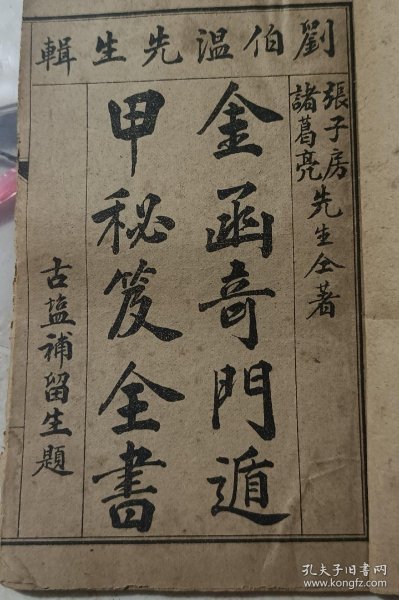 劉伯温先生輯
張子房
諸葛亮
先生仝著
金函奇門遁
甲秘笈全書
古盐補留生題
孔夫子旧書网
www.kongfz.com